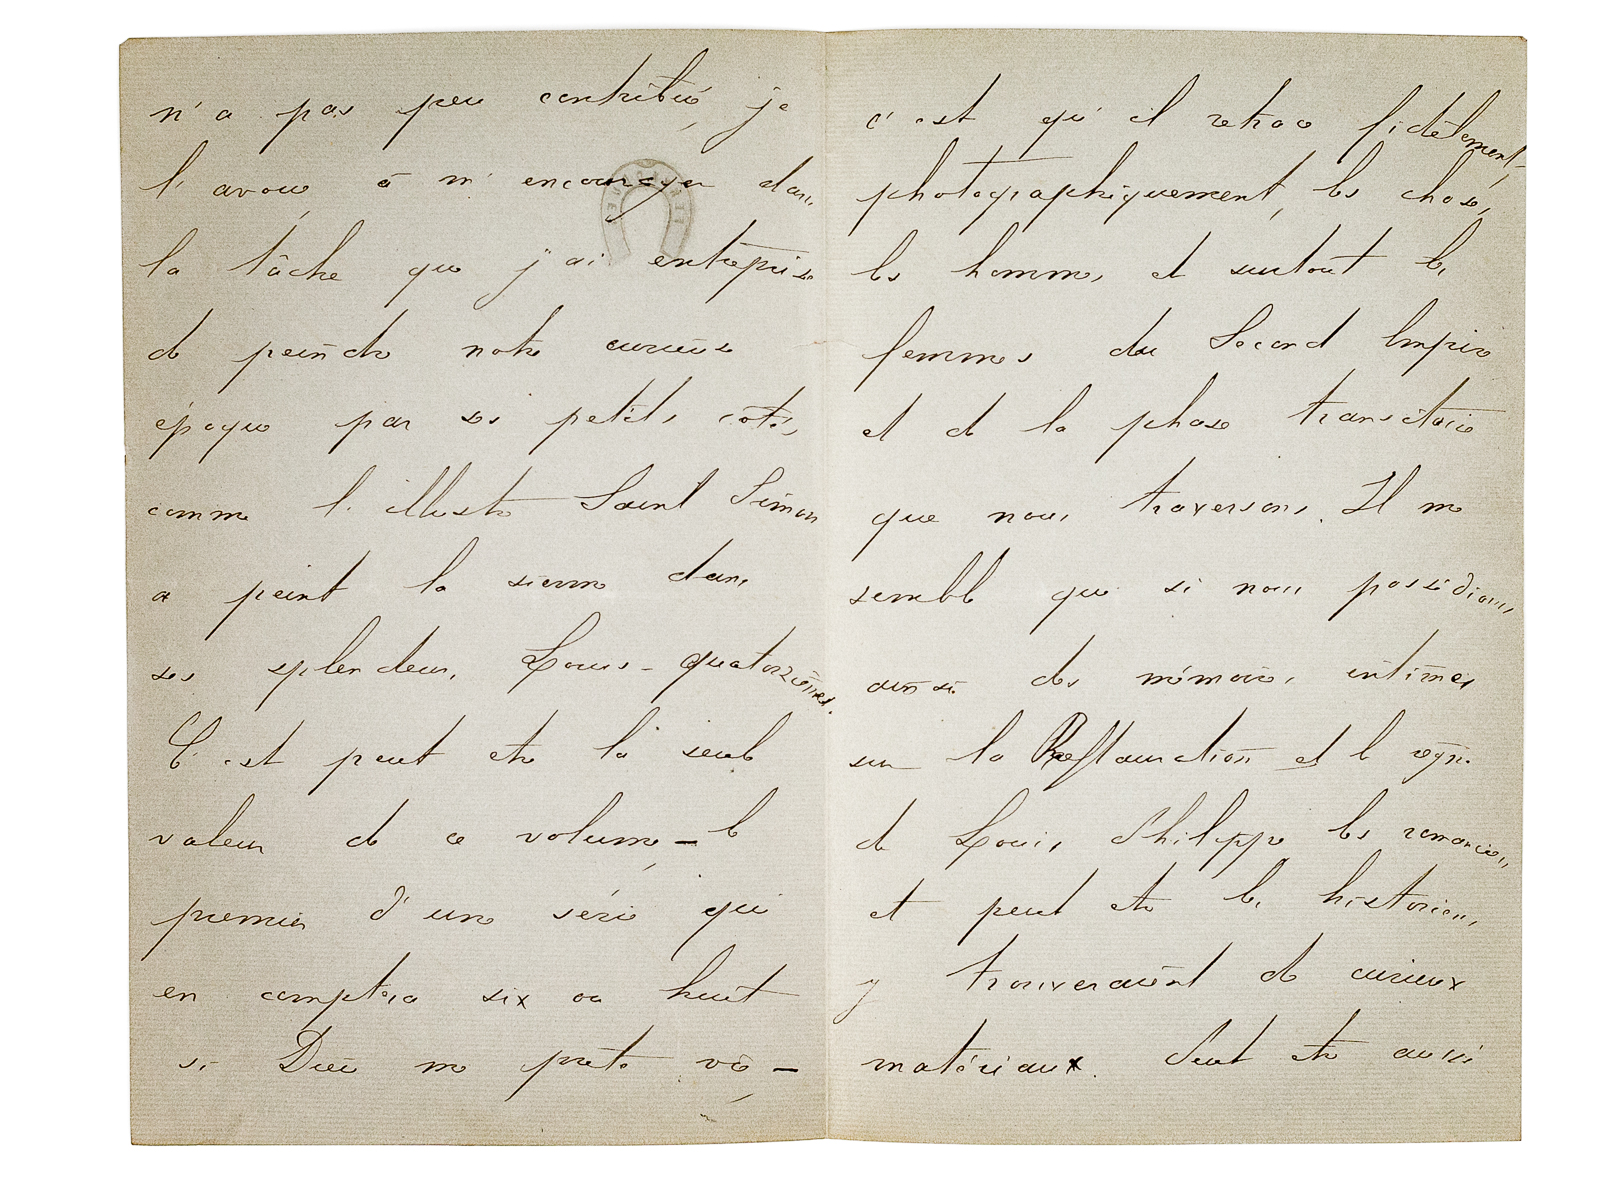 n'a pas peu contribué, je
l'avoue, à m'encourager dans
la tâche que j'ai entreprise
de peindre notre curieuse
époque par ses petits côtés,
comme l'illustre Saint Simon
a peint la sienne dans
ses splendeurs Louis-quatorziennes.
C'est peut etre la seule
valeur de ce volume, – le
premier d'une série qui
en comptera six ou huit
si Dieu me prête vie, –
c'est qu'il retrace fidèlement,
photographiquement, les choses,
les hommes et surtout les
femmes du Second Empire
et de la phase transitoire
que nous traversons. Il me
semble que si nous possédions
ainsi des mémoires intimes
sur la Restauration et le règne
de Louis Philippe les romanciers
et peut etre les historiens
y trouveraient de curieux
matériaux. Peut etre aussi